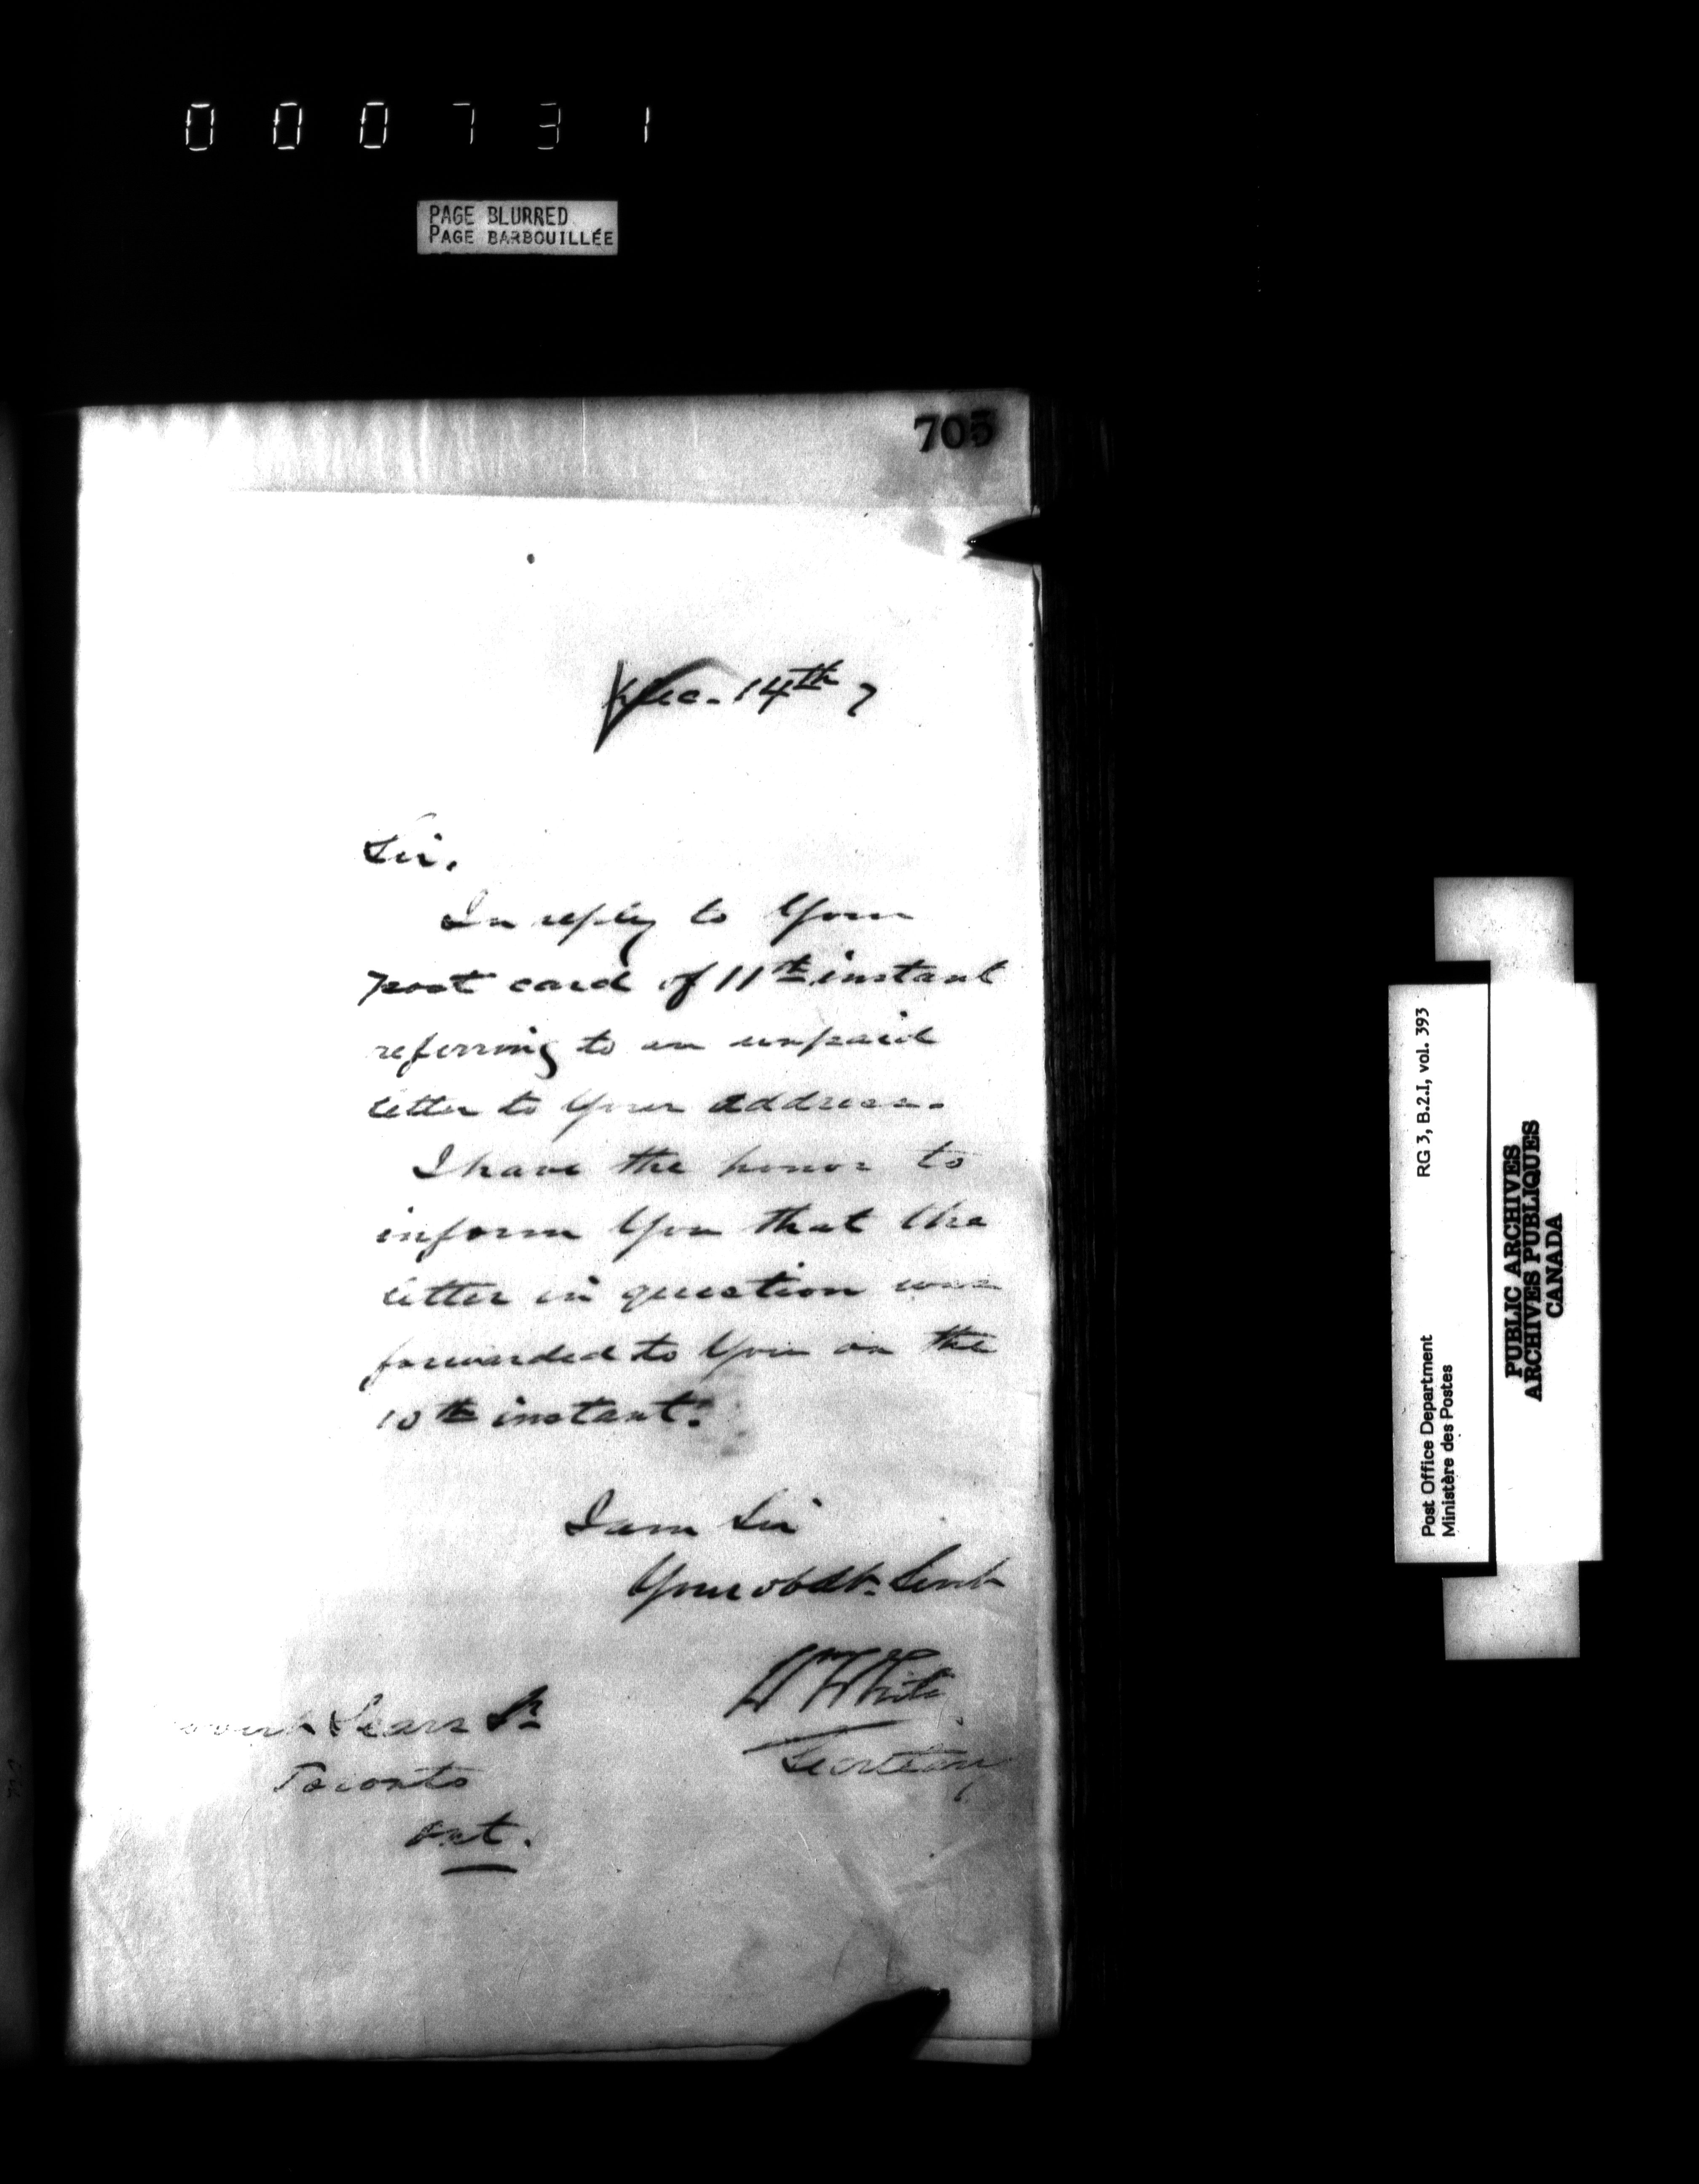 000731
PAGE BLURRED
PAGE BARBOUILLÉE
705
Dec. 14th 7
Sir.
In reply to Your
post card of 11th instant
referring to an unpaid
letter to Your address.
I have the honor to
inform You that the
letter in question was
forwarded to You on the
10th instant.
I am Sir
Your obdt. Servt
Wm White
Secretary
Sears Jr
Toronto
Ont.
Post Office Department
Ministère des Postes
RG 3, B.2.I, vol. 393
PUBLIC ARCHIVES
ARCHIVES PUBLIQUES
CANADA